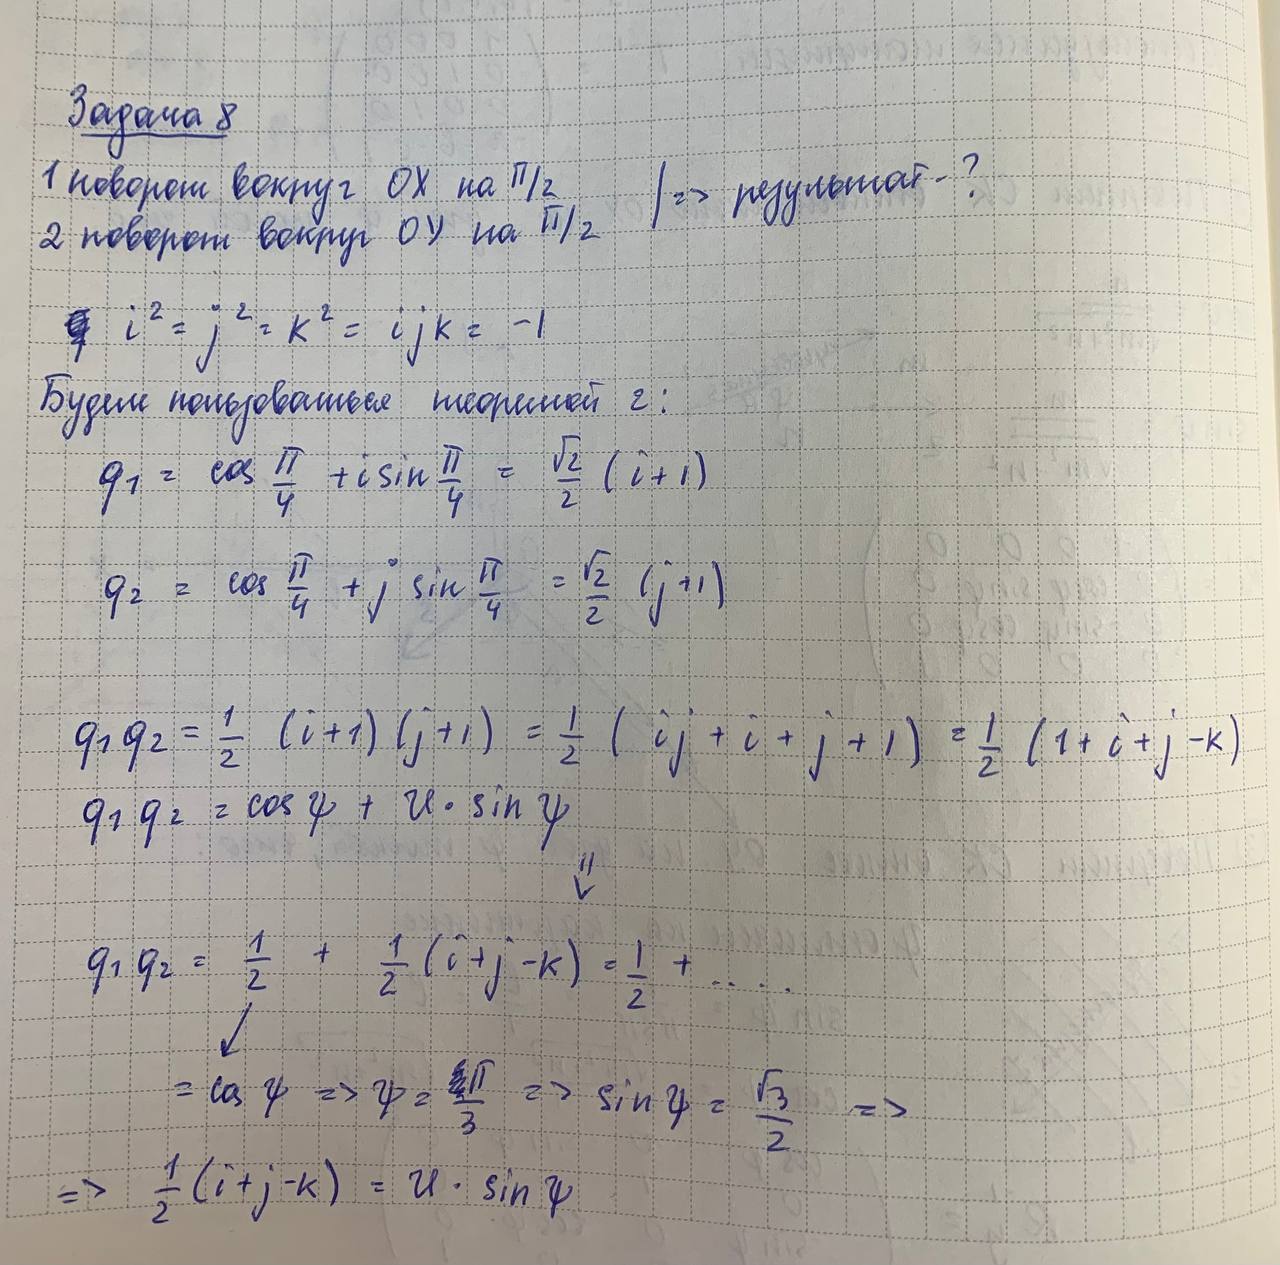 Задача 8
1 поворот вокруг OX на π/2
2 поворот вокруг OY на π/2 | => результат - ?
i² = j² = k² = ijk = -1
Будем пользоваться теоремой 2:
q₁ = cos π/4 + i sin π/4 = √2/2 (i+1)
q₂ = cos π/4 + j sin π/4 = √2/2 (j+1)
q₁q₂ = 1/2 (i+1)(j+1) = 1/2 (ij + i + j + 1) = 1/2 (1+i+j-k)
q₁q₂ = cos ψ + u · sin ψ
q₁q₂ = 1/2 + 1/2 (i+j-k) = 1/2 + ....
= cos ψ => ψ = π/3 => sin ψ = √3/2 =>
=> 1/2 (i+j-k) = u · sin ψ